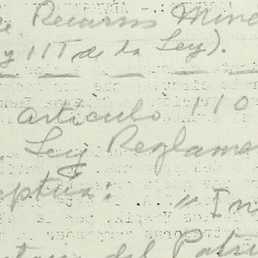 de Recursos Mine
y III de la Ley).
artículo 110
Ley Reglame
eptúa: "In
del Patri